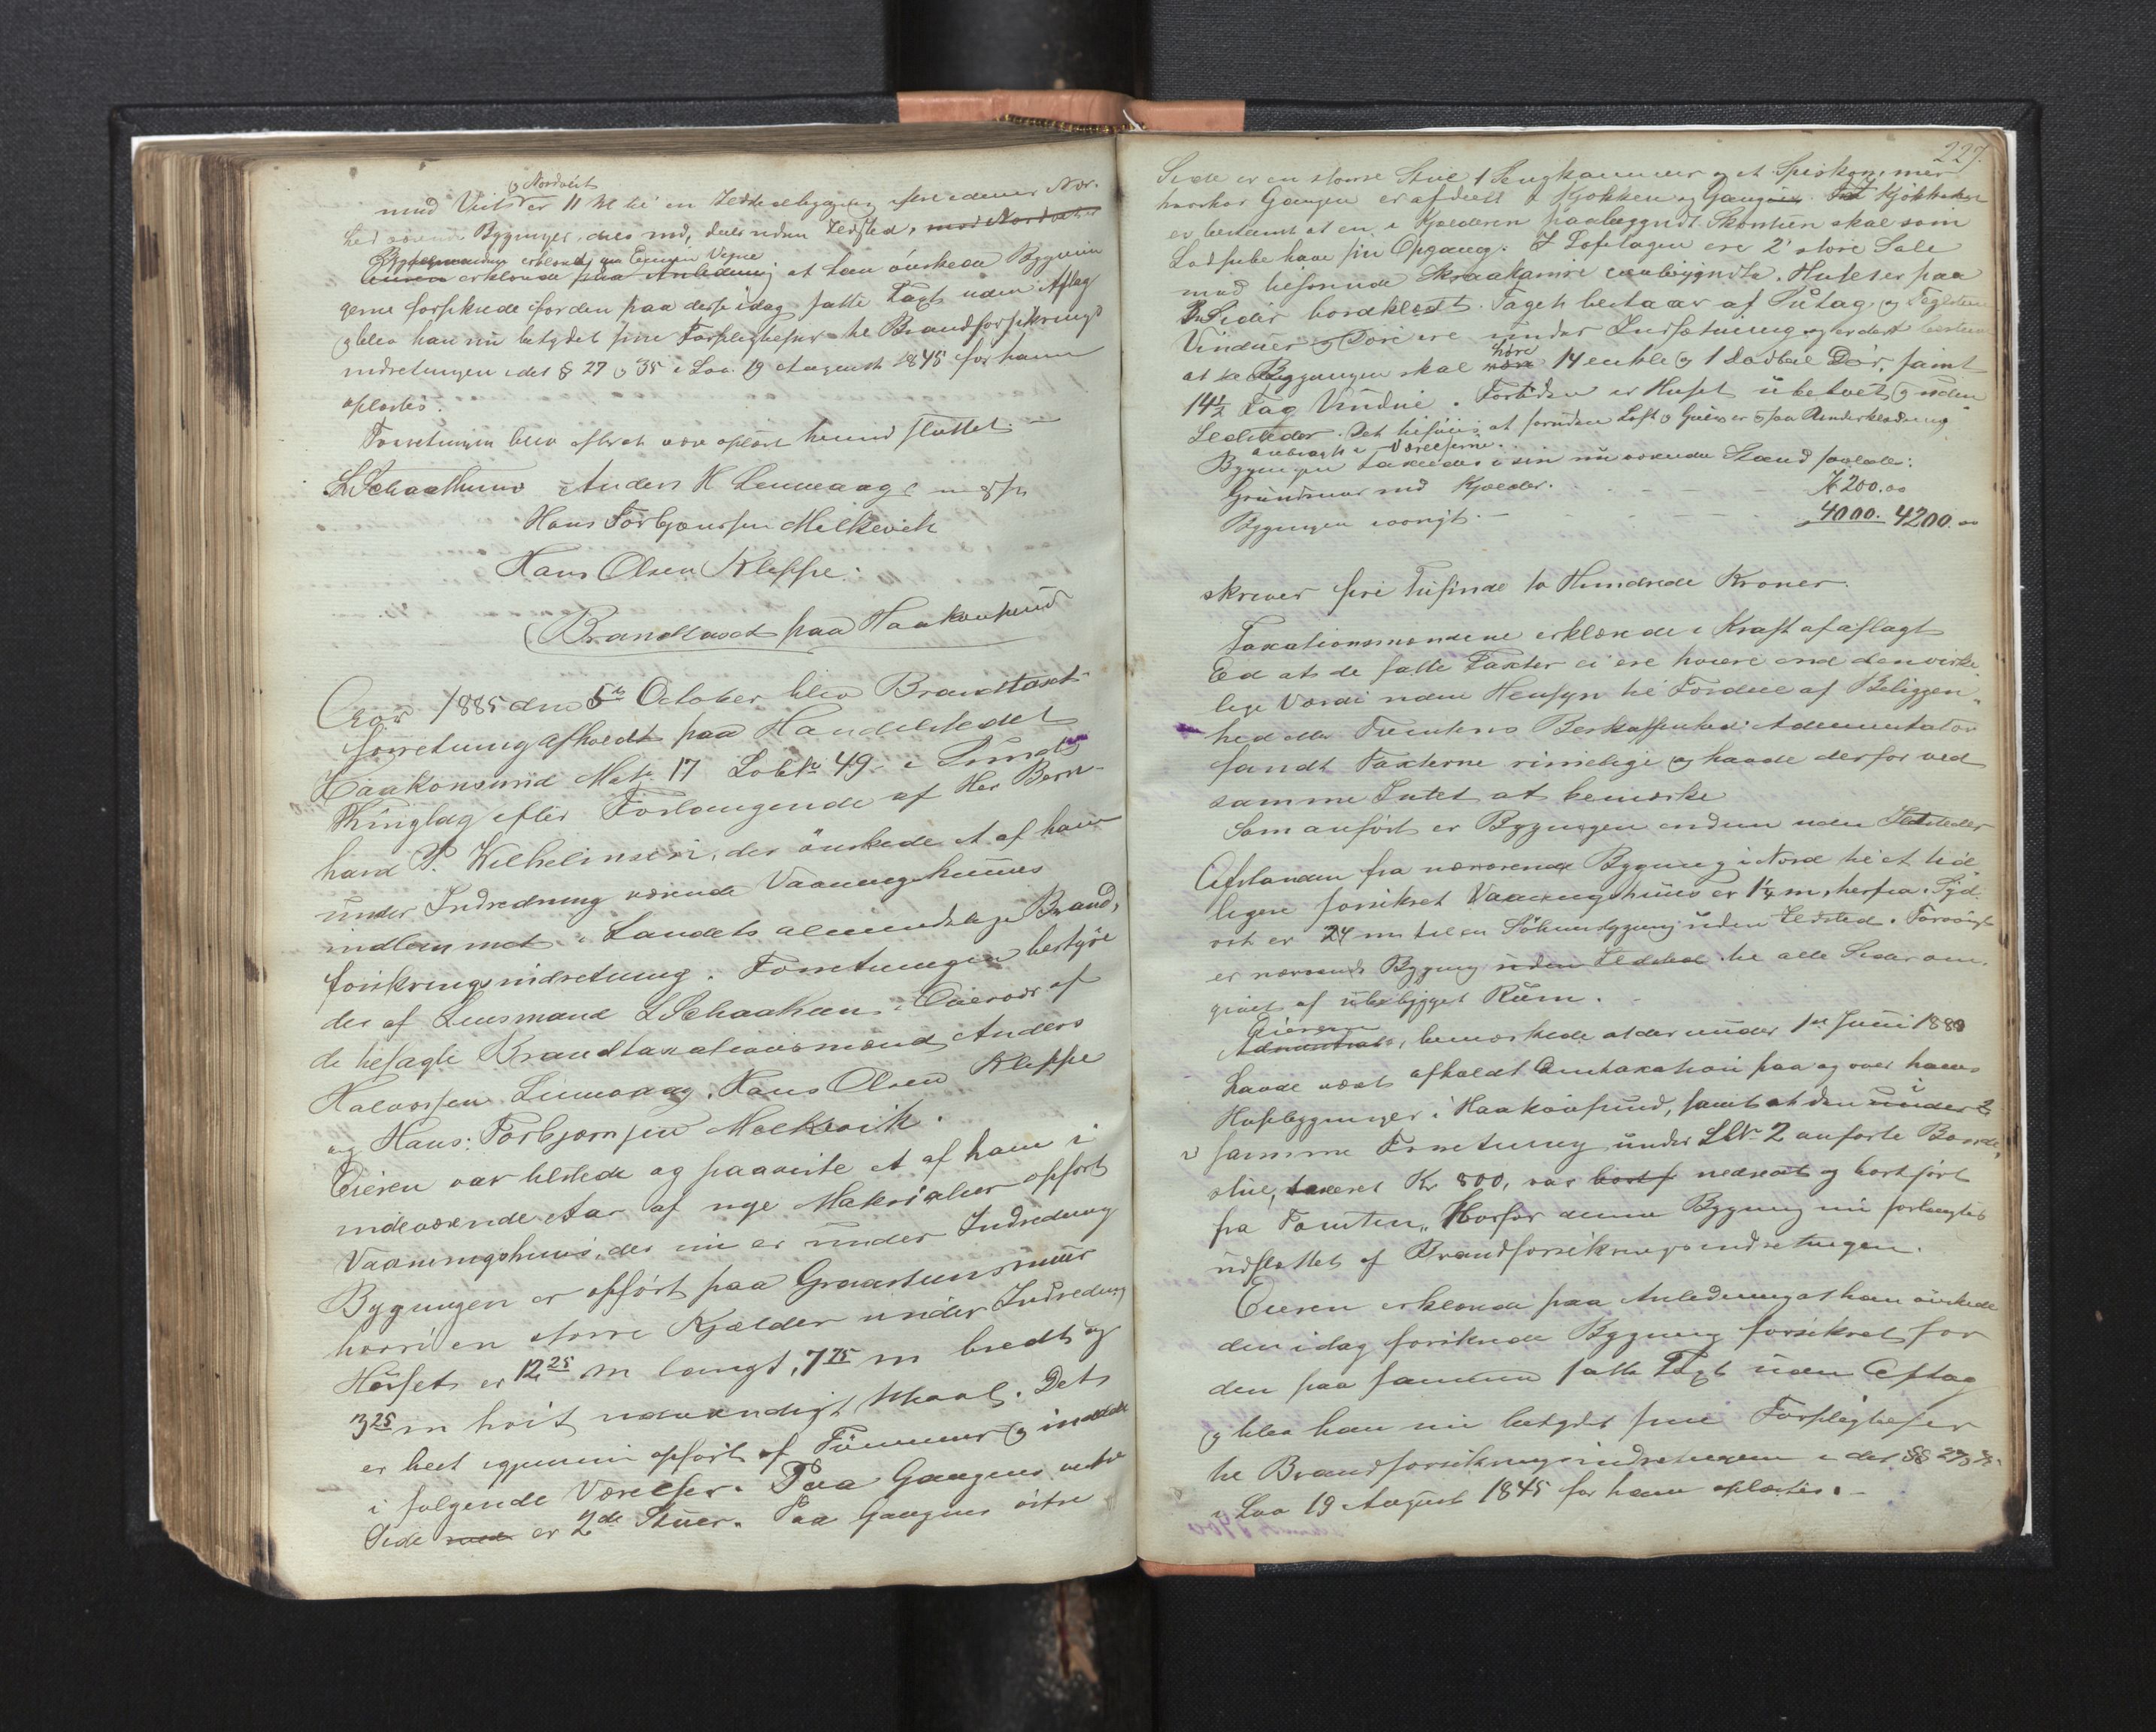 og Nordvest
mod Vest er 11 M til en Ildstedbygning
hed værende Bygninger, dels med, dels uden Ildsted, mod Nordvest er
Bygselmanden erklærede paa Eierens Vegne
Eieren erklærede paa Anledning at han önskede Bygnin
gerne forsikrede for den paa disse idag satte Taxt uden Aftag
og blev han nu betydet sine Forpligtelser til Brandforsikrings
indretningen i det § 27 og 35 i Lov 19 August 1845 for ham
oplæstes.
Forretningen blev efterat være oplæst hermed sluttet. —
L Schaathuun Anders H Linnevaag m. p. P.
Hans Torbjørnsen Milkevik
Hans Olsen Kleppe.
Brandtaxt paa Haakonsund
Aar 1885 den 5te October blev Brandtaxt
forretning afholdt paa Handelsstedet
Haakonsund Matr 17 Löbenr 49 i Sunds
Thinglag efter Forlangende af Her Bern-
hard P. Wilhelmsen, der önskede et af ham
under Indredning værende Vaaningshuus
indlemmet i Landets almindelige Brand,
forsikringsindretning. Forretningen bestyre
des af Lensmand L Schaathuun i Overvær af
de besagte Brandtaxationsmænd Anders
Halvorsen Linnevaag, Hans Olsen Kleppe
og Hans Torbjørnsen Milkevik.
Eieren var tilstede og paaviste et af ham i
indeværende Aar af nye Materialier opfört
Vaaningshuus, der nu er under Indredning
Bygningen er opfört paa Graasteensmuur
hvori en större Kjælder under Indredning
Huset er 12 25 m langt, 7 75 m bredt og
3 25 m höit udvendigt Maal. Det
er helt igjennem opfört af Tömmer og inddelt
i følgende Værelser. Paa Gangens vestre
Side med er 2de Stuer. Paa Gangens östre
227.
Side er en större Stue 1 Sengkammer og et Spiskammer
hvorhos Gangen er afdeelt i Kjökken og Gang. I Kjökkenet
er bestemt at en i Kjælderen paabegyndt Skorsten skal som
Ladpibe have sin Opgang. I Loftetagen ere 2 store Sale
med Skraakamre
Sider bordklædt. Taget bestaar af Sutag og Teglsteen
Vinduer og Döre ere under Indsætning og er det bestemt
at Bygningen skal have 14 enkle og 1 dobbel Dör, samt
14½ Fag Vindue. Fortiden er Huset ubeboet og uden
Ildsteder. Det tilføies at foruden Loft og Gulv er ogsaa Underklædning
anbragt i Værelserne.
Bygningen taxeredes i sin nu værende Stand saaledes:
Grundmur med Kjælder. — Kr 200.00
Bygningen iövrigt. — 4000. 4200.00
skriver fire Tusinde to Hundrede Kroner.
Taxationsmændene erklærede i Kraft af aflagt
Eed at de satte Taxter ei ere höiere end den virke,
lige Værdi uden Hensyn til Fordele af Beliggen,
hed eller Tomtens Beskaffenhed. Administrator
fandt Taxterne rimelige og havde derfor ved
samme Intet at bemærke
Som anfört er Bygningen endnu uden Ildsteder
Afstanden fra nærværende Bygning i Nord til et tid
ligere forsikret Vaaningshuus er 1¼ m, herfra i Syd
ost er 24 m til en Söhuusbygning uden Ildsted. Forövrigt
er nærværende Bygning uden Ildsted til alle Sider om,
givet af ubebygget Rum.
Eieren
Administrator, bemærkede at der under 1ste Juni 1880
havde været afholdt Omtaxation paa og over hans
Husebygninger i Haakonsund, samt at den under
samme Forretning under LNr 2 anförte Baarde,
stue, taxeret Kr 800, var bortf nedrevet og bortfört
fra Tomten, Hvorfor denne Bygning nu forlangtes
udslettet af Brandforsikringsindretningen.
Eieren erklærede paa Anledning at han önskede
den idag forsikrede Bygning forsikret for
den paa samme satte Taxt uden Aftag
og blev han nu betydet sine Forpligtelser
til Brandforsikringsindretningen i det §§ 27 og 35
i Lov 19 August 1845 for ham oplæstes. —